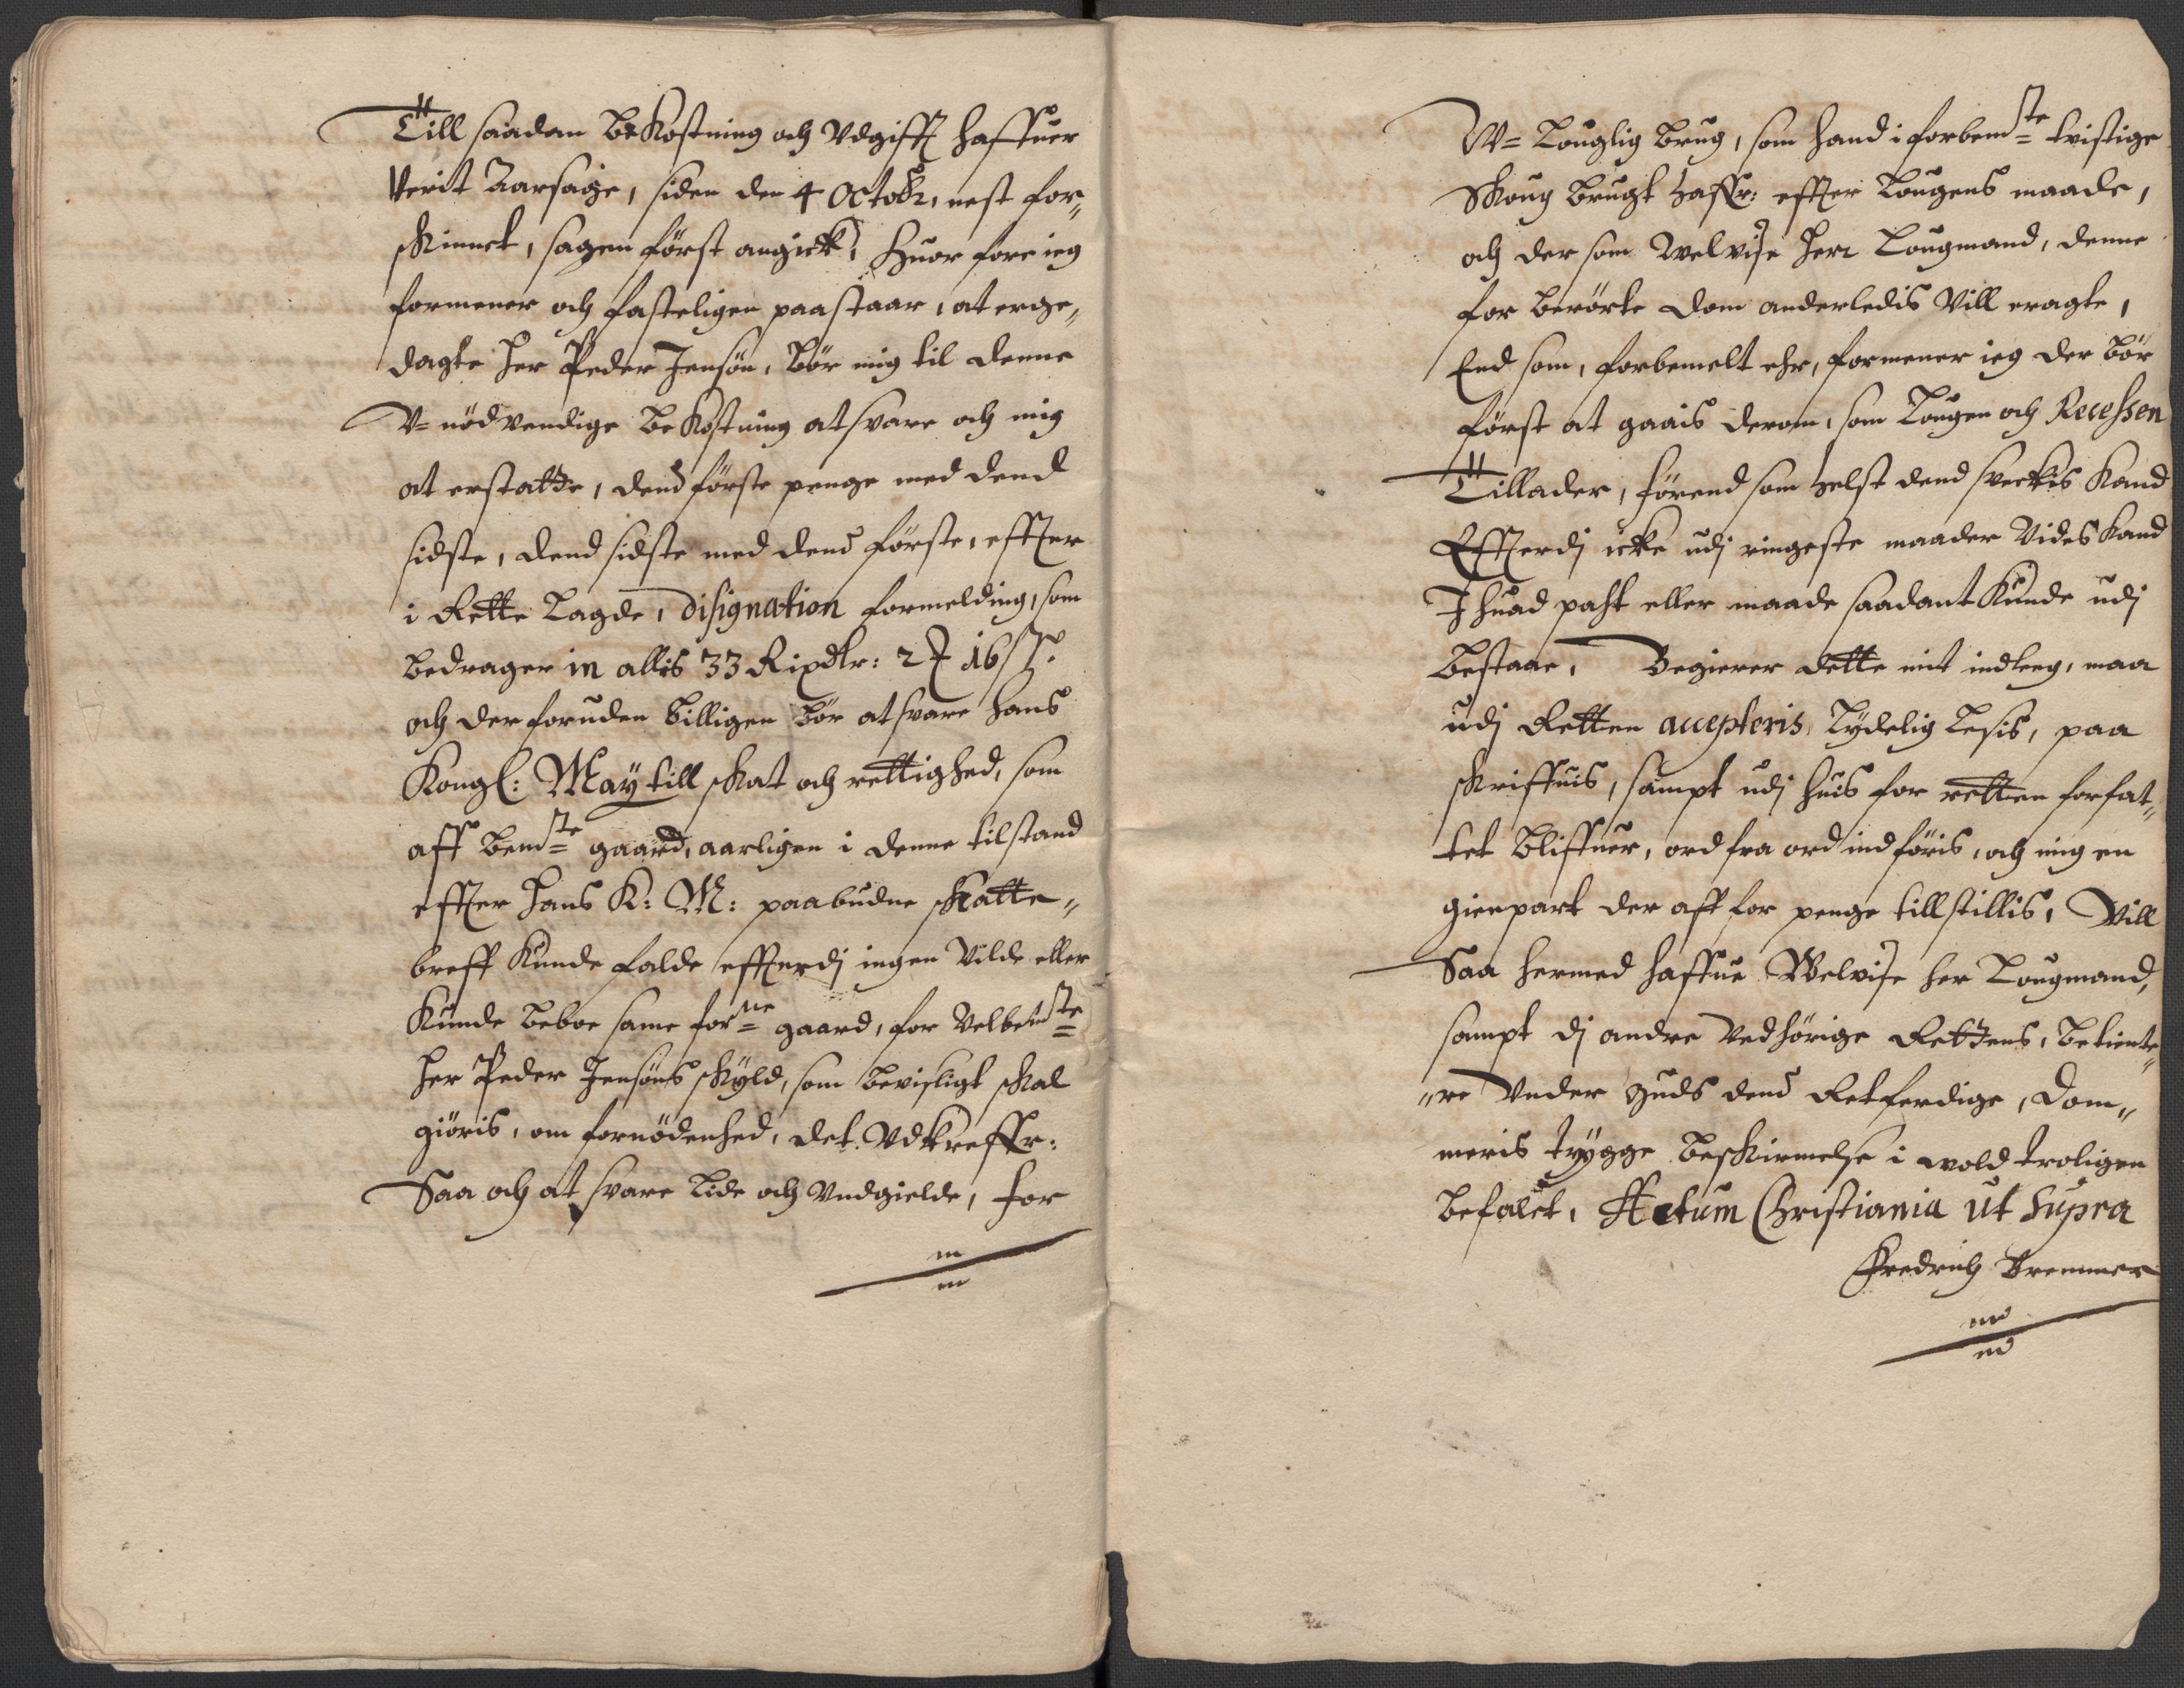 Till saadan beKostning och Vdgifft haffuer
Verit Aarsage, siden den 4 Octobr, nest for„
skinnet, sagen först angick, Huor fore ieg
formener och fasteligen paastaar, at erge„
dagte Her Peder Jensön, bör mig til denne
V= nödvendige beKostning at svare och mig
at erstatte, dend förste penge med dend
sidste, dend sidste med dend förste, effter
i Rette Lagde, disignation formelding, som
bedrager in allis 33 Rixdlr: 2 ₰ 16 ß.
och der foruden billigen bör at svare Hans
Kongl: May till skat och rettighed, som
aff bemte gaard, aarligen i denne tilstand
effter Hans K: M: paabudne skatte„
breff Kunde falde effterdj ingen Vilde eller
Kunde beboe same forne gaard, for Velbemte
Her Peder Jensöns skyld, som bevisligt skal
giöris, om fornödenhed, det Vdkreffr:
Saa och at svare lide och Vndgielde, for
V= Louglig brug, som hand i forbemte tvistige
Skoug brugt haffr: effter Lougens maade,
och der som Welvise Herr Lougmand, denne
for berörte dom anderledis Vill eragte,
End som, forbemelt ehr, formener ieg der bör
först at gaais derom, som Lougen och Recessen
Tillader, förend som helst dend sveckis Kand
Effterdj icke udj ringeste maader Vides Kand
J huad past eller maade saadant Kunde udj
bestaae, Begierer dette mit indleeg, maa
udj Retten accepteris, Lydelig Lesis, paa
skriffuis, sampt udj huis for retten forfat„
tet bliffuer, ord fra ord ind föris, och mig en
gienpart der aff for penge tillstillis, Vill
Saa hermed haffue Welvise her Lougmand,
sampt dj andre Vedhörige Rettens, betiente„
„re Vnder Guds dend Retferdige, Dom„
meris trygge beskirmelse i vold troligen
befalet, Actum Christiania ut supra
Fredrich Bremmer